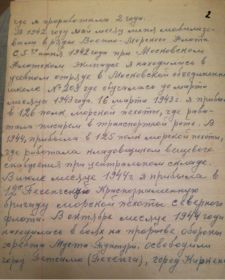 2
где я проработала 2 года.
В 1942 году май месяц меня мобилизо-
вали в ряды Военно-Морского Флота
С 5 июня 1942 года при Московском
Флотском Экипаже я находилась в
учебном отряде в Московской объединённой
школе № 208 где обучалась до марта
месяца 1943 года. 16 марта 1943 г. я прибыла
в 126 полк морской пехоты, где рабо-
тала писарем в транспортной роте. В
1944, прибыла в 125 полк морской пехоты,
где работала кладовщиком вещевого
снабжения при центральном складе.
В июле месяце 1944 г. я прибыла в
12ую Печенгскую Краснознамённую
бригаду морской пехоты Северного
флота. В октябре месяце 1944 года
находились в боях на прорыве обороны
хребта Муста Тунтури. освободили
город Петсамо (Печенга), город Киркенес